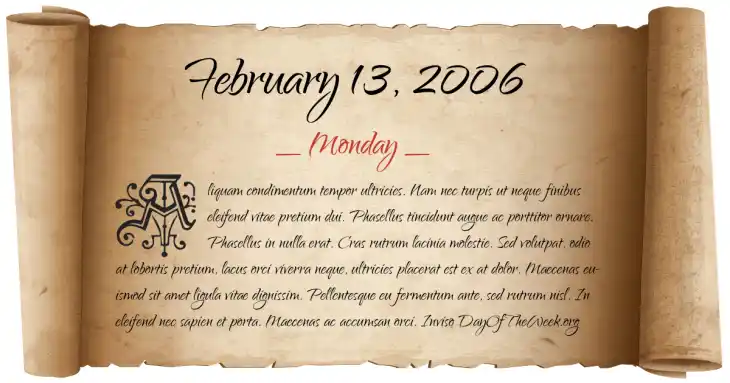 February 13, 2006
_ Monday _
Aliquam condimentum tempor ultricies. Nam nec turpis ut neque finibus
eleifend vitae pretium dui. Phasellus tincidunt augue ac porttitor ornare.
Phasellus in nulla erat. Cras rutrum lacinia molestie. Sed volutpat, odio
at lobortis pretium, lacus orci viverra neque, ultricies placerat est ex at dolor. Maecenas eu-
ismod sit amet ligula vitae dignissim. Pellentesque eu fermentum ante, sed rutrum nisl. In
eleifend nec sapien et porta. Maecenas ac accumsan orci. Inviso DayOfTheWeek.org